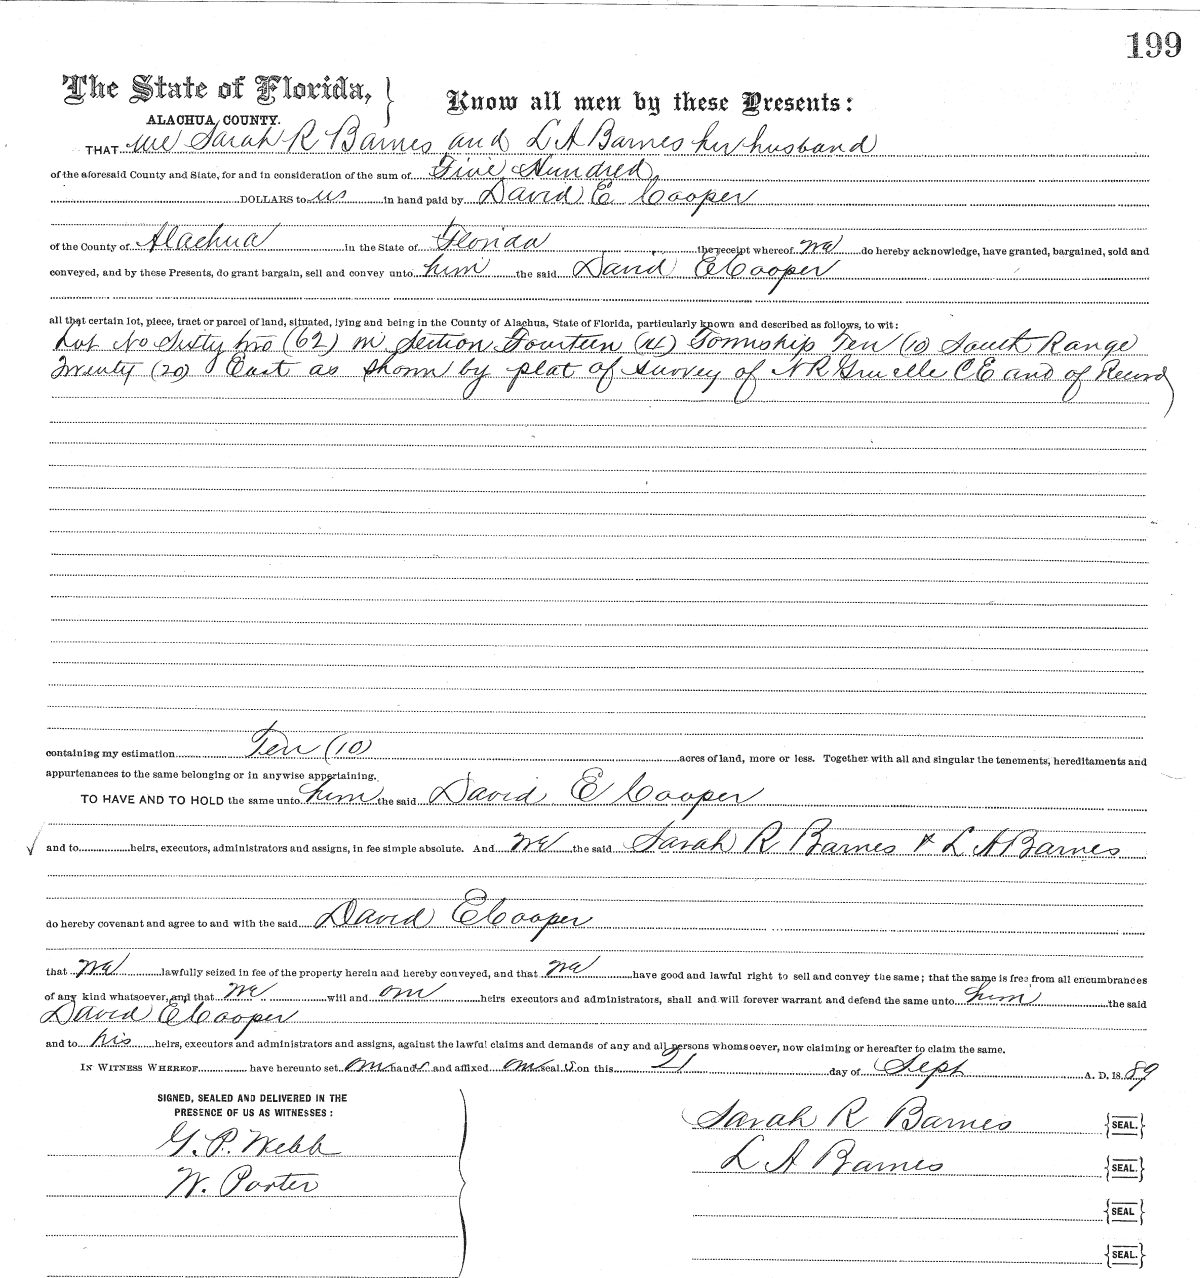 199
The State of Florida,
ALACHUA COUNTY.
Know all men by these Presents:
THAT we Sarah R Barnes and L A Barnes her husband
of the aforesaid County and State, for and in consideration of the sum of Five Hundred
DOLLARS to us in hand paid by David E Cooper
of the County of Alachua in the State of Florida the receipt whereof we do hereby acknowledge, have granted, bargained, sold and
conveyed, and by these Presents, do grant bargain, sell and convey unto him the said David E Cooper
all that certain lot, piece, tract or parcel of land, situated, lying and being in the County of Alachua, State of Florida, particularly known and described as follows, to wit:
Lot No Sixty two (62) in Section Fourteen (14) Township Ten (10) South Range
Twenty (20) East as shown by plat of survey of N R Gruelle C E and of Record
containing my estimation Ten (10) acres of land, more or less. Together with all and singular the tenements, hereditaments and
appurtenances to the same belonging or in anywise appertaining.
TO HAVE AND TO HOLD the same unto him the said David E Cooper
and to heirs, executors, administrators and assigns, in fee simple absolute. And we the said Sarah R Barnes & L A Barnes
do hereby covenant and agree to and with the said David E Cooper
that we lawfully seized in fee of the property herein and hereby conveyed, and that we have good and lawful right to sell and convey the same; that the same is free from all encumbrances
of any kind whatsoever, and that we will and our heirs executors and administrators, shall and will forever warrant and defend the same unto him the said
David E Cooper
and to his heirs, executors and administrators and assigns, against the lawful claims and demands of any and all persons whomsoever, now claiming or hereafter to claim the same.
IN WITNESS WHEREOF have hereunto set our hands and affixed our seal s on this 21 day of Sept A. D. 18 89
SIGNED, SEALED AND DELIVERED IN THE
PRESENCE OF US AS WITNESSES:
G. P. Webb
W. Porter
Sarah R Barnes {SEAL.}
L A Barnes {SEAL.}
{SEAL}
{SEAL.}